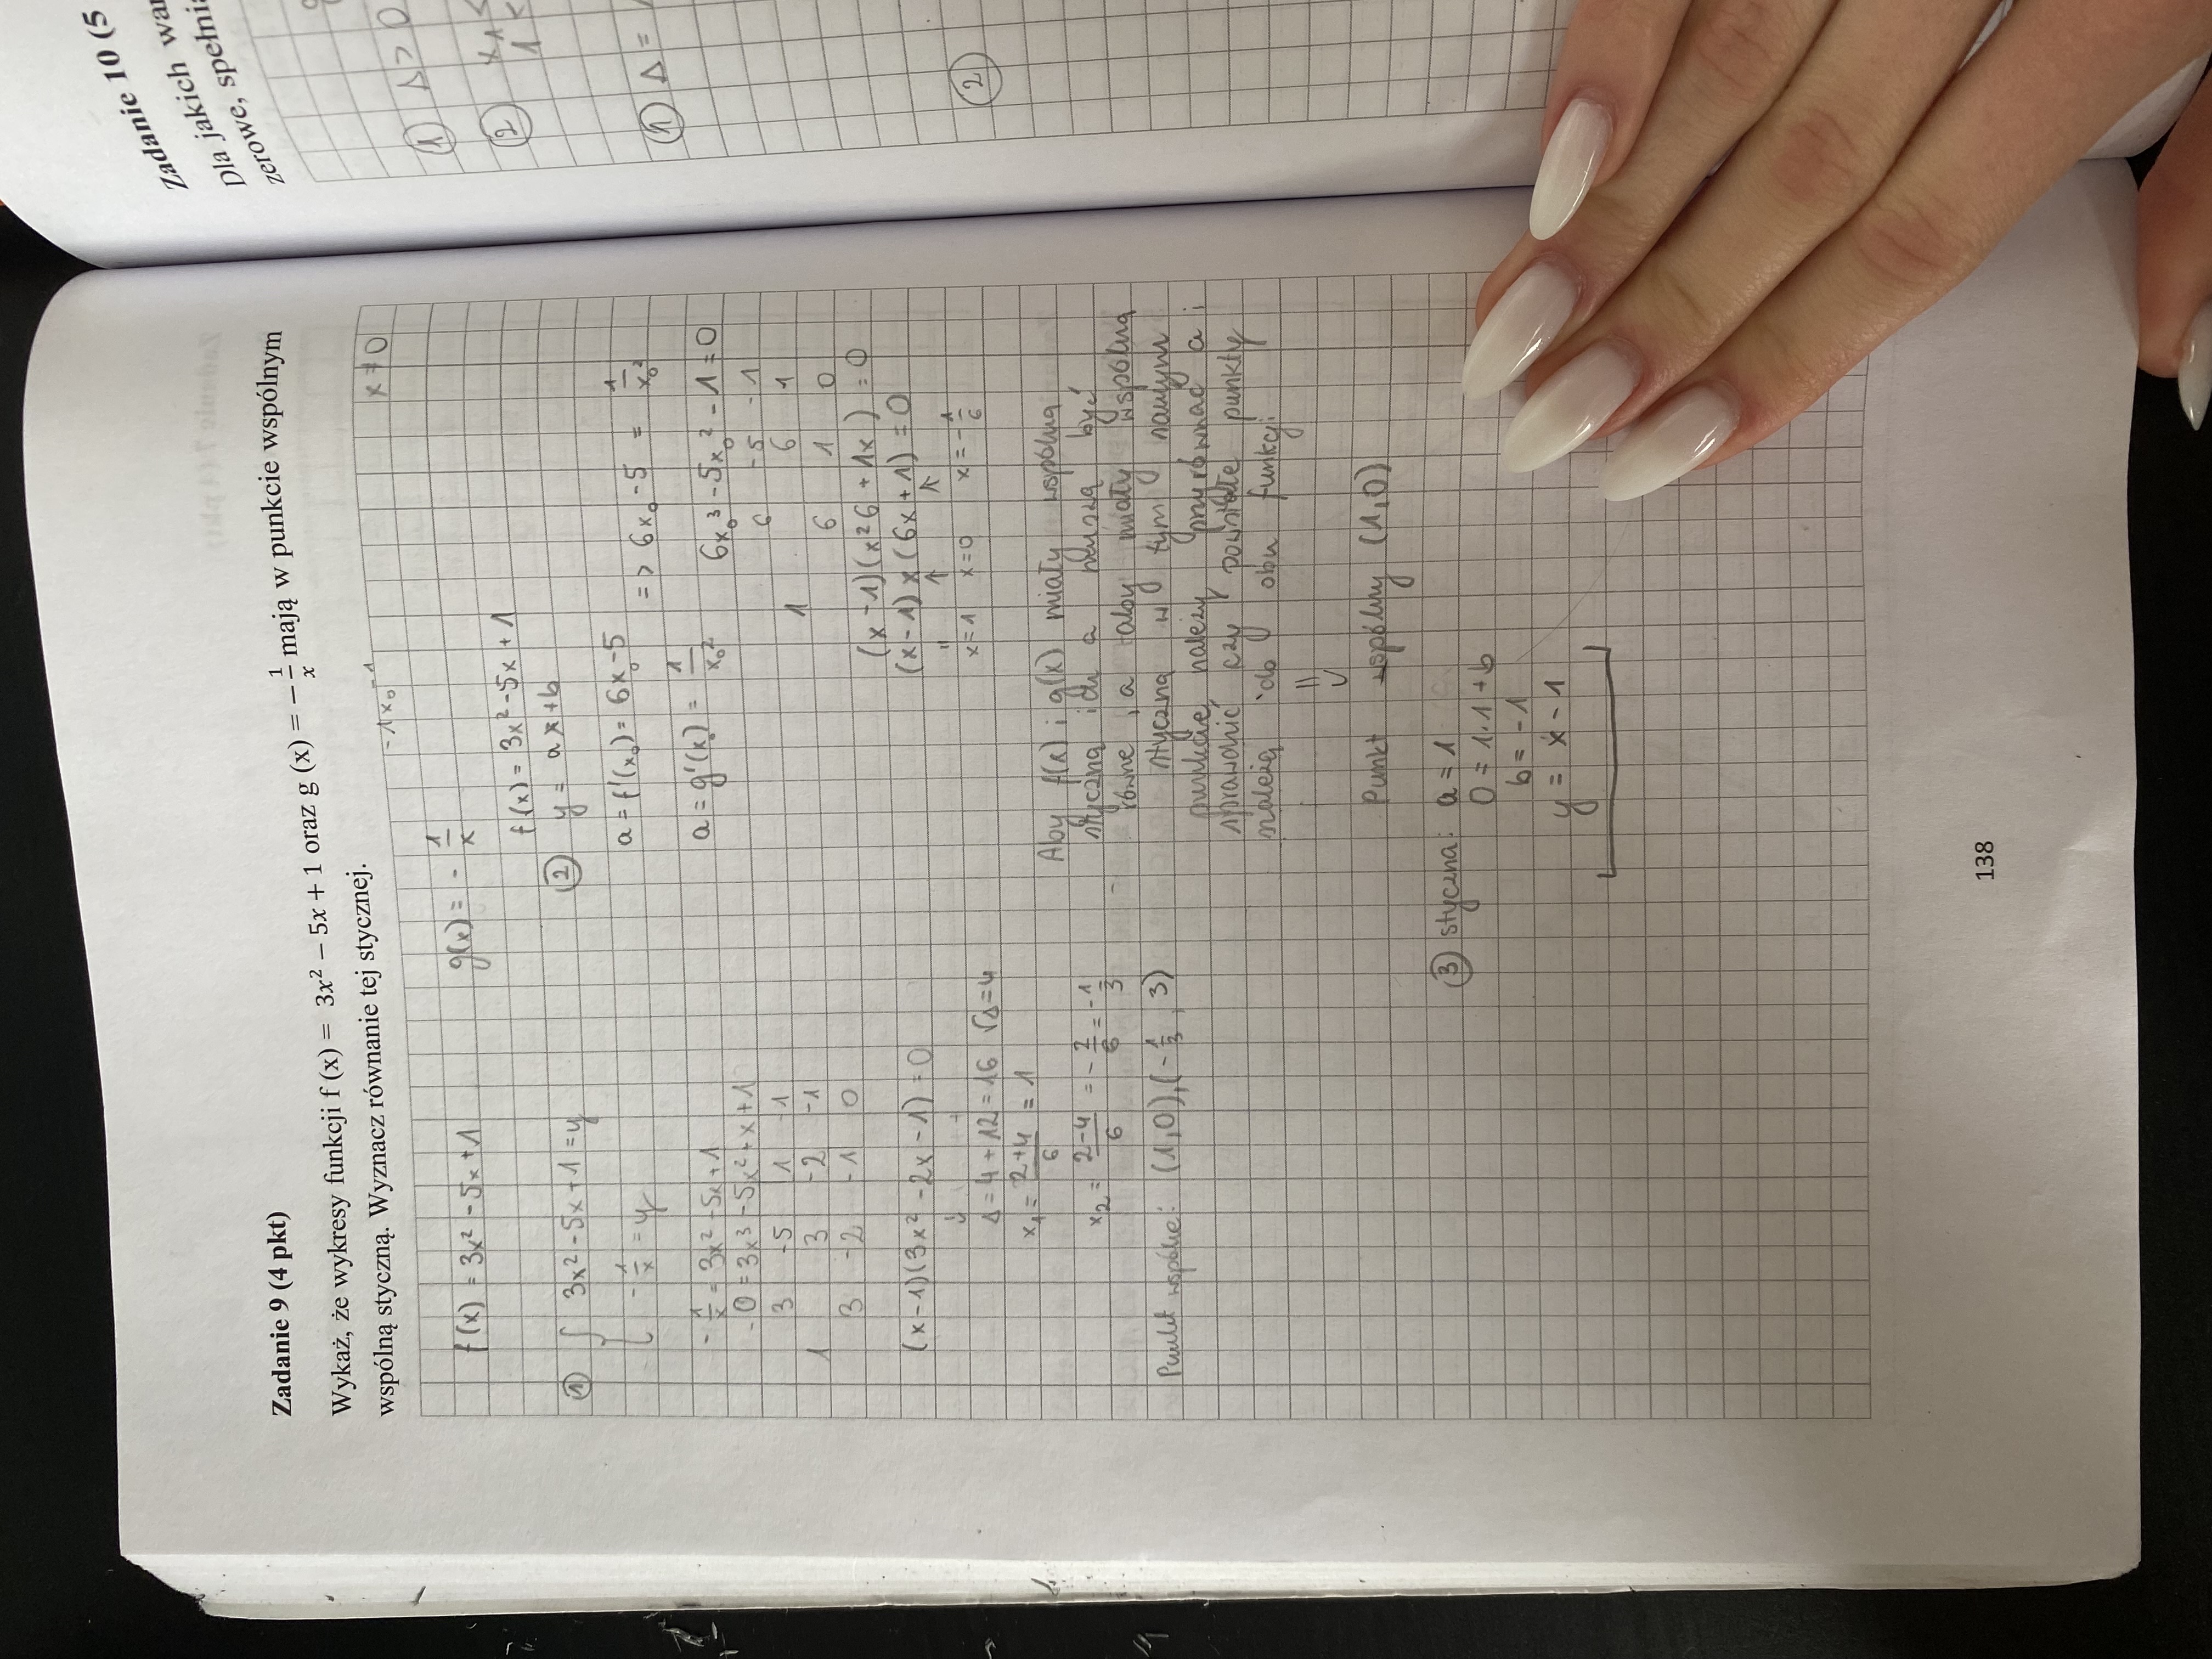 Zadanie 9 (4 pkt)
Wykaż, że wykresy funkcji f (x) = 3x² − 5x + 1 oraz g (x) = − 1/x mają w punkcie wspólnym
wspólną styczną. Wyznacz równanie tej stycznej.
-1x₀⁻¹
x ≠ 0
f(x) = 3x² - 5x + 1
g(x) = - 1/x
① { 3x² - 5x + 1 = y
- 1/x = y
- 1/x = 3x² - 5x + 1
0 = 3x³ - 5x² + x + 1
3 -5 1 1
1 3 -2 -1
3 -2 -1 0
(x-1)(3x² - 2x - 1) = 0
Δ = 4 + 12 = 16 √Δ = 4
x₁ = 2+4/6 = 1
x₂ = 2-4/6 = - 2/6 = - 1/3
Punkt wspólne: (1,0), (- 1/3, 3)
f(x) = 3x² - 5x + 1
② y = ax + b
a = f'(x₀) = 6x₀ - 5
=> 6x₀ - 5 = 1/x₀²
a = g'(x₀) = 1/x₀²
6x₀³ - 5x₀² - 1 = 0
6 -5 -1
1 6 1
6 1 0
(x-1)(x²6 + 1x) = 0
(x-1)x(6x+1) = 0
x=1 x=0 x=- 1/6
Aby f(x) i g(x) miały wspólną
styczną ich a muszą być
równe, a aby miały wspólną
styczną w tym samym
punkcie, należy przyrównać a i
sprawdzić czy powstałe punkty
należą do obu funkcji
Punkt wspólny (1,0)
③ styczna: a = 1
0 = 1·1 + b
b = -1
y = x - 1
138
Zadanie 10 (5
Dla jakich
zerowe,
① Δ > 0
②
① Δ =
②